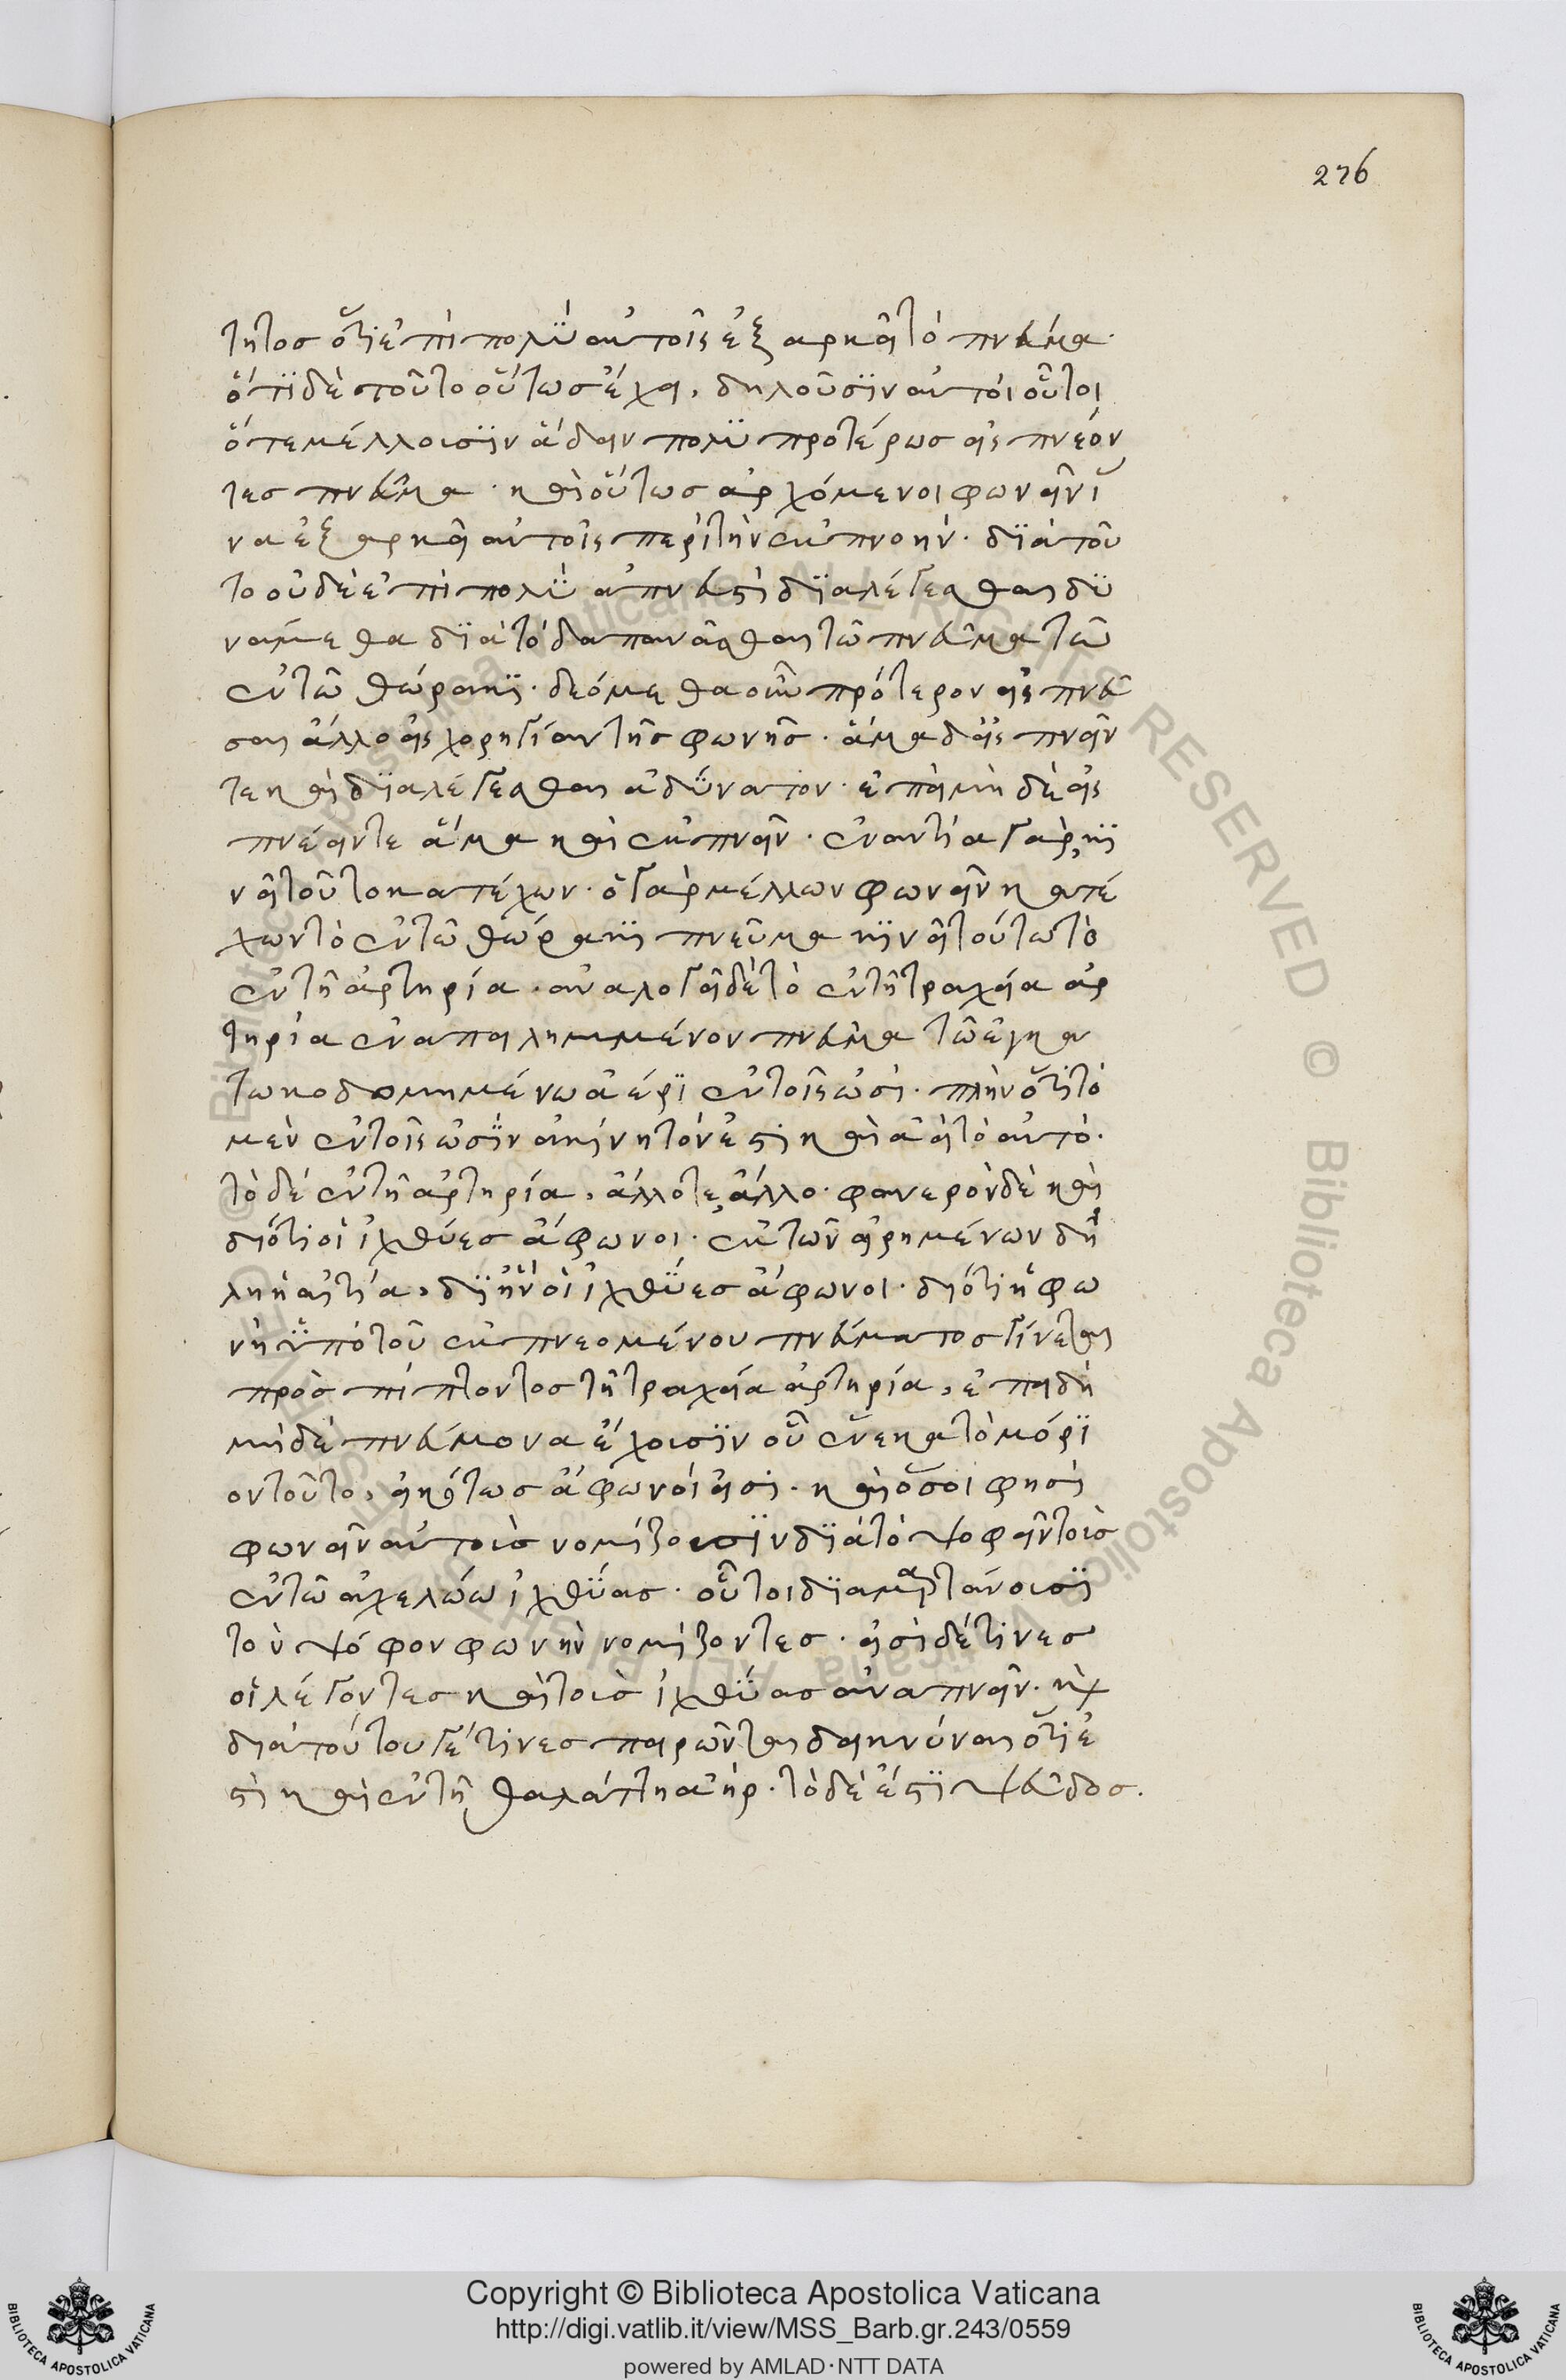 276
τητος ὅτι ἐπὶ πολὺ αὐτοῖς ἐξαρκεῖ τὸ πνεῦμα·
ὅτι δὲ τοῦτο οὕτως ἔχει, δηλοῦσιν αὐτοὶ οὗτοι
ὅτε μέλλουσιν ἄδειν πολὺ προτέρως εἰσπνέον
τες πνεῦμα· καὶ οὕτως ἀρχόμενοι φωνεῖν ἵ
να ἐξαρκεῖ αὐτοῖς περὶ τὴν ἐκπνοήν· διὰ τοῦ
το οὐδὲ ἐπὶ πολὺ ἀπνευστὶ διαλέγεσθαι δυ
νάμεθα διὰ τὸ δαπανᾶσθαι τῶ πνεῦμα τῶ
ἐν τῶ θώρακι· δεόμεθα οὖν πρότερον εἰσπνεῦ
σαι ἄλλο εἰς χορηγίαν τῆς φωνῆς· ἅμα δ εἰσπνεῖν
τε καὶ διαλέγεσθαι ἀδύνατον· ἐπεὶ μὴ δὲ εἰς
πνέειν τε ἅμα καὶ ἐκπνεῖν· ἐναντία γάρ, κι
νεῖ τοῦτο κατέχων· ὁ γὰρ μέλλων φωνεῖν κατέ
χων τὸ ἐν τῶ θώρακι πνεῦμα κινεῖ τούτω τὸ
ἐν τῆ ἀρτηρία· ἀναλογεῖ δὲ τὸ ἐν τῆ τραχεία ἀρ
τηρία ἐναπειλημμένον πνεῦμα τῶ ἐγκα
τωκοδομημένω ἀέρι ἐν τοῖς ὠσί· πλὴν ὅτι τὸ
μὲν ἐν τοῖς ὠσὶν ἀκίνητόν ἐστι καὶ ἀεὶ τὸ αὐτό·
τὸ δὲ ἐν τῆ ἀρτηρία, ἄλλοτε, ἄλλο· φανερὸν δὲ καὶ
διότι οἱ ἰχθύες ἄφωνοι· ἐκ τῶν εἰρημένων δή
λη ἡ αἰτία, δι ἣν οἱ ἰχθύες ἄφωνοι· διότι ἡ φω
νὴ ὑπὸ τοῦ ἐκπνεομένου πνεύματος γίνεται
προσπίπτοντος τῆ τραχεία ἀρτηρία, ἐπειδὴ
μὴ δὲ πνεύμονα ἔχουσιν οὗ ἕνεκα τὸ μόρι
ον τοῦτο, εἰκότως ἄφωνοί εἰσι· καὶ ὅσοι φησὶ
φωνεῖν αὐτοὺς νομίζουσιν διὰ τὸ ψοφεῖν τοὺς
ἐν τῶ ἀχελώω ἰχθύας· οὗτοι διαμαρτάνουσι
τὸν ψόφον φωνὴν νομίζοντες· εἰσὶ δέ τινες
οἱ λέγοντες καὶ τοὺς ἰχθύας ἀναπνεῖν· καὶ
διὰ τούτου γέ τινες πειρῶνται δεικνύναι ὅτι ἐ
στὶ καὶ ἐν τῆ θαλάττη ἀήρ· τὸ δὲ ἐστὶ ψεῦδος.
Copyright © Biblioteca Apostolica Vaticana
http://digi.vatlib.it/view/MSS_Barb.gr.243/0559
powered by AMLAD·NTT DATA